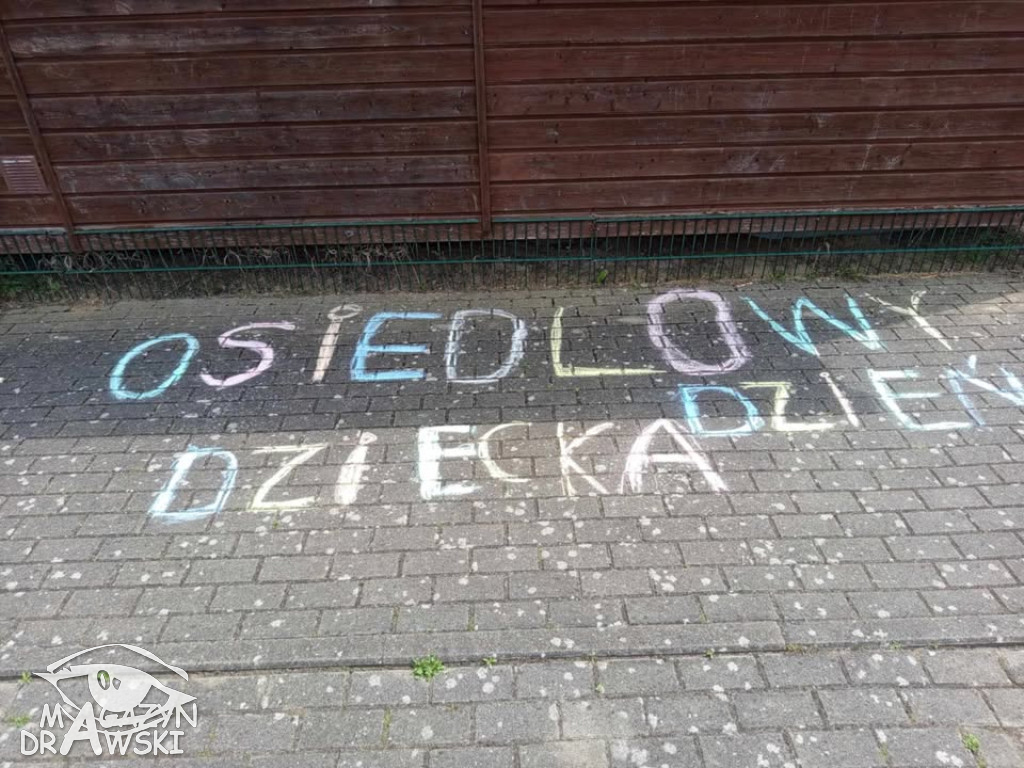 OSIEDLOWY
DZIEŃ
DZIECKA
MAGAZYN
DRAWSKI